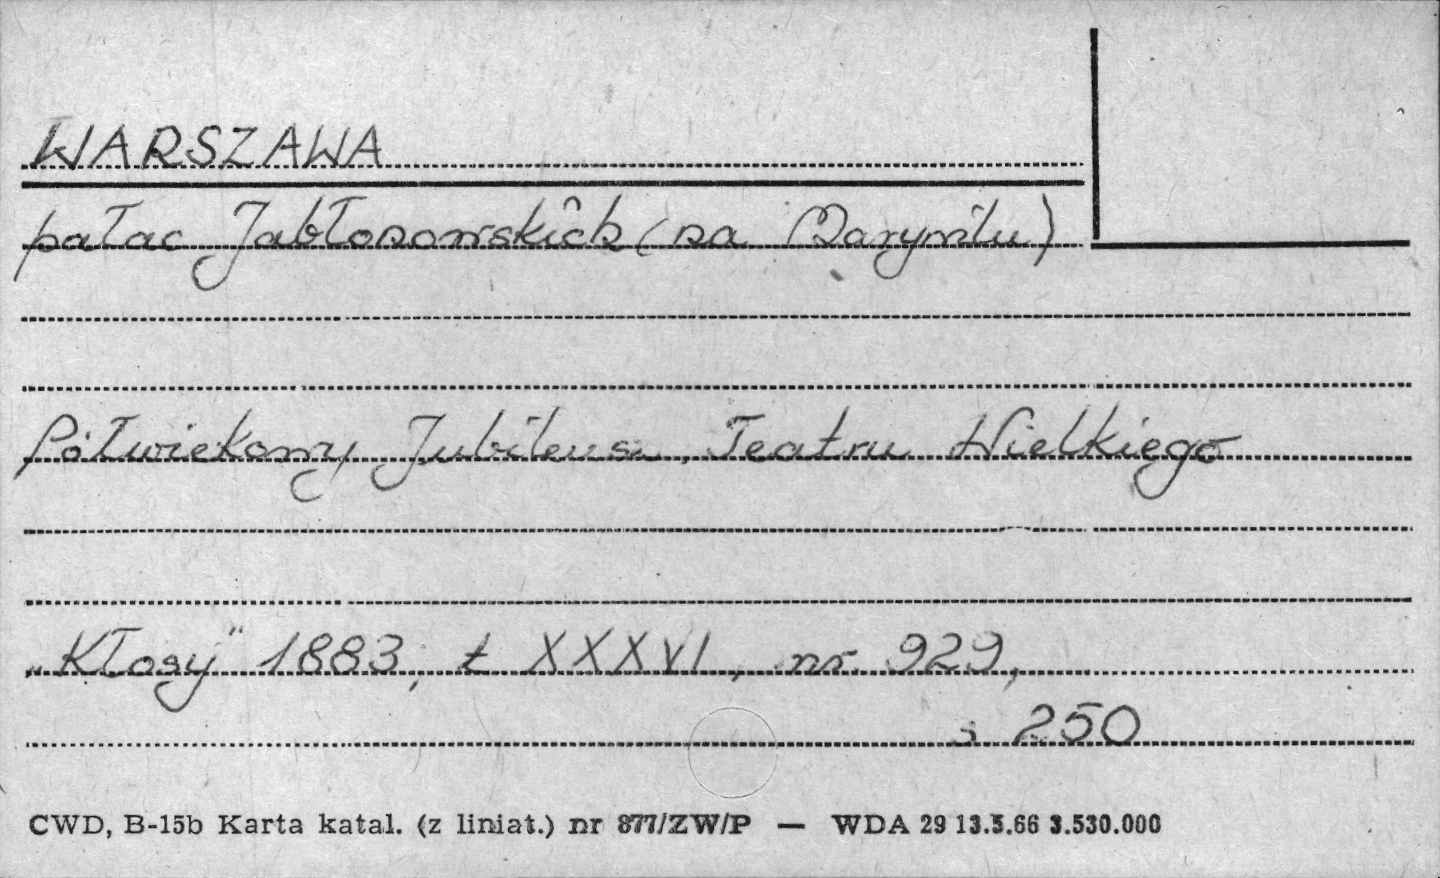 WARSZAWA
pałac Jabłonowskich (na Marymilu)
Półwiekowy Jubileusz Teatru Wielkiego
„Kłosy" 1883, t XXXVI, nr. 929,
s 250
CWD, B-15b Karta katal. (z liniat.) nr 877/ZW/P — WDA 29 13.5.66 3.530.000